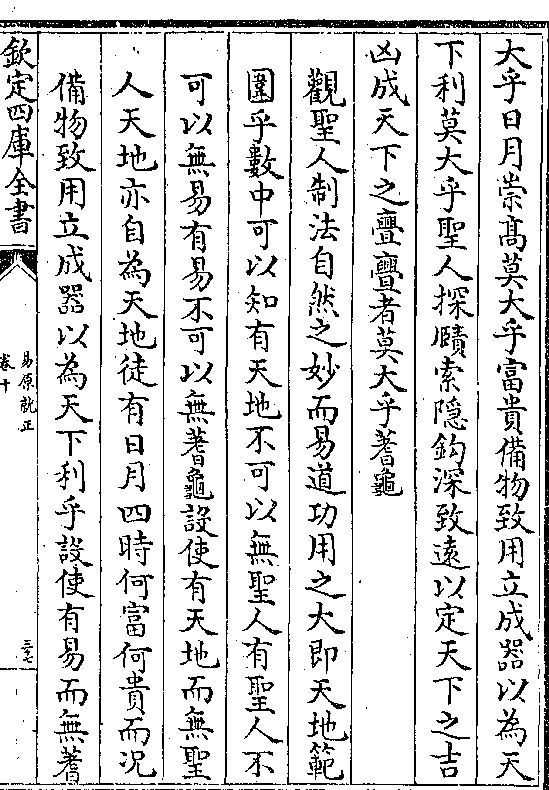 大乎日月崇髙莫大乎富貴備物致用立成器以為天
下利莫大乎聖人探賾索隠鈎深致逺以定天下之吉
凶成天下之亹亹者莫大乎蓍龜
觀聖人制法自然之妙而易道功用之大即天地範
圍乎數中可以知有天地不可以無聖人有聖人不
可以無易有易不可以無蓍龜設使有天地而無聖
人天地亦自為天地徒有日月四時何富何貴而况
備物致用立成器以為天下利乎設使有易而無蓍
欽定四庫全書
易原就正
卷十
三七